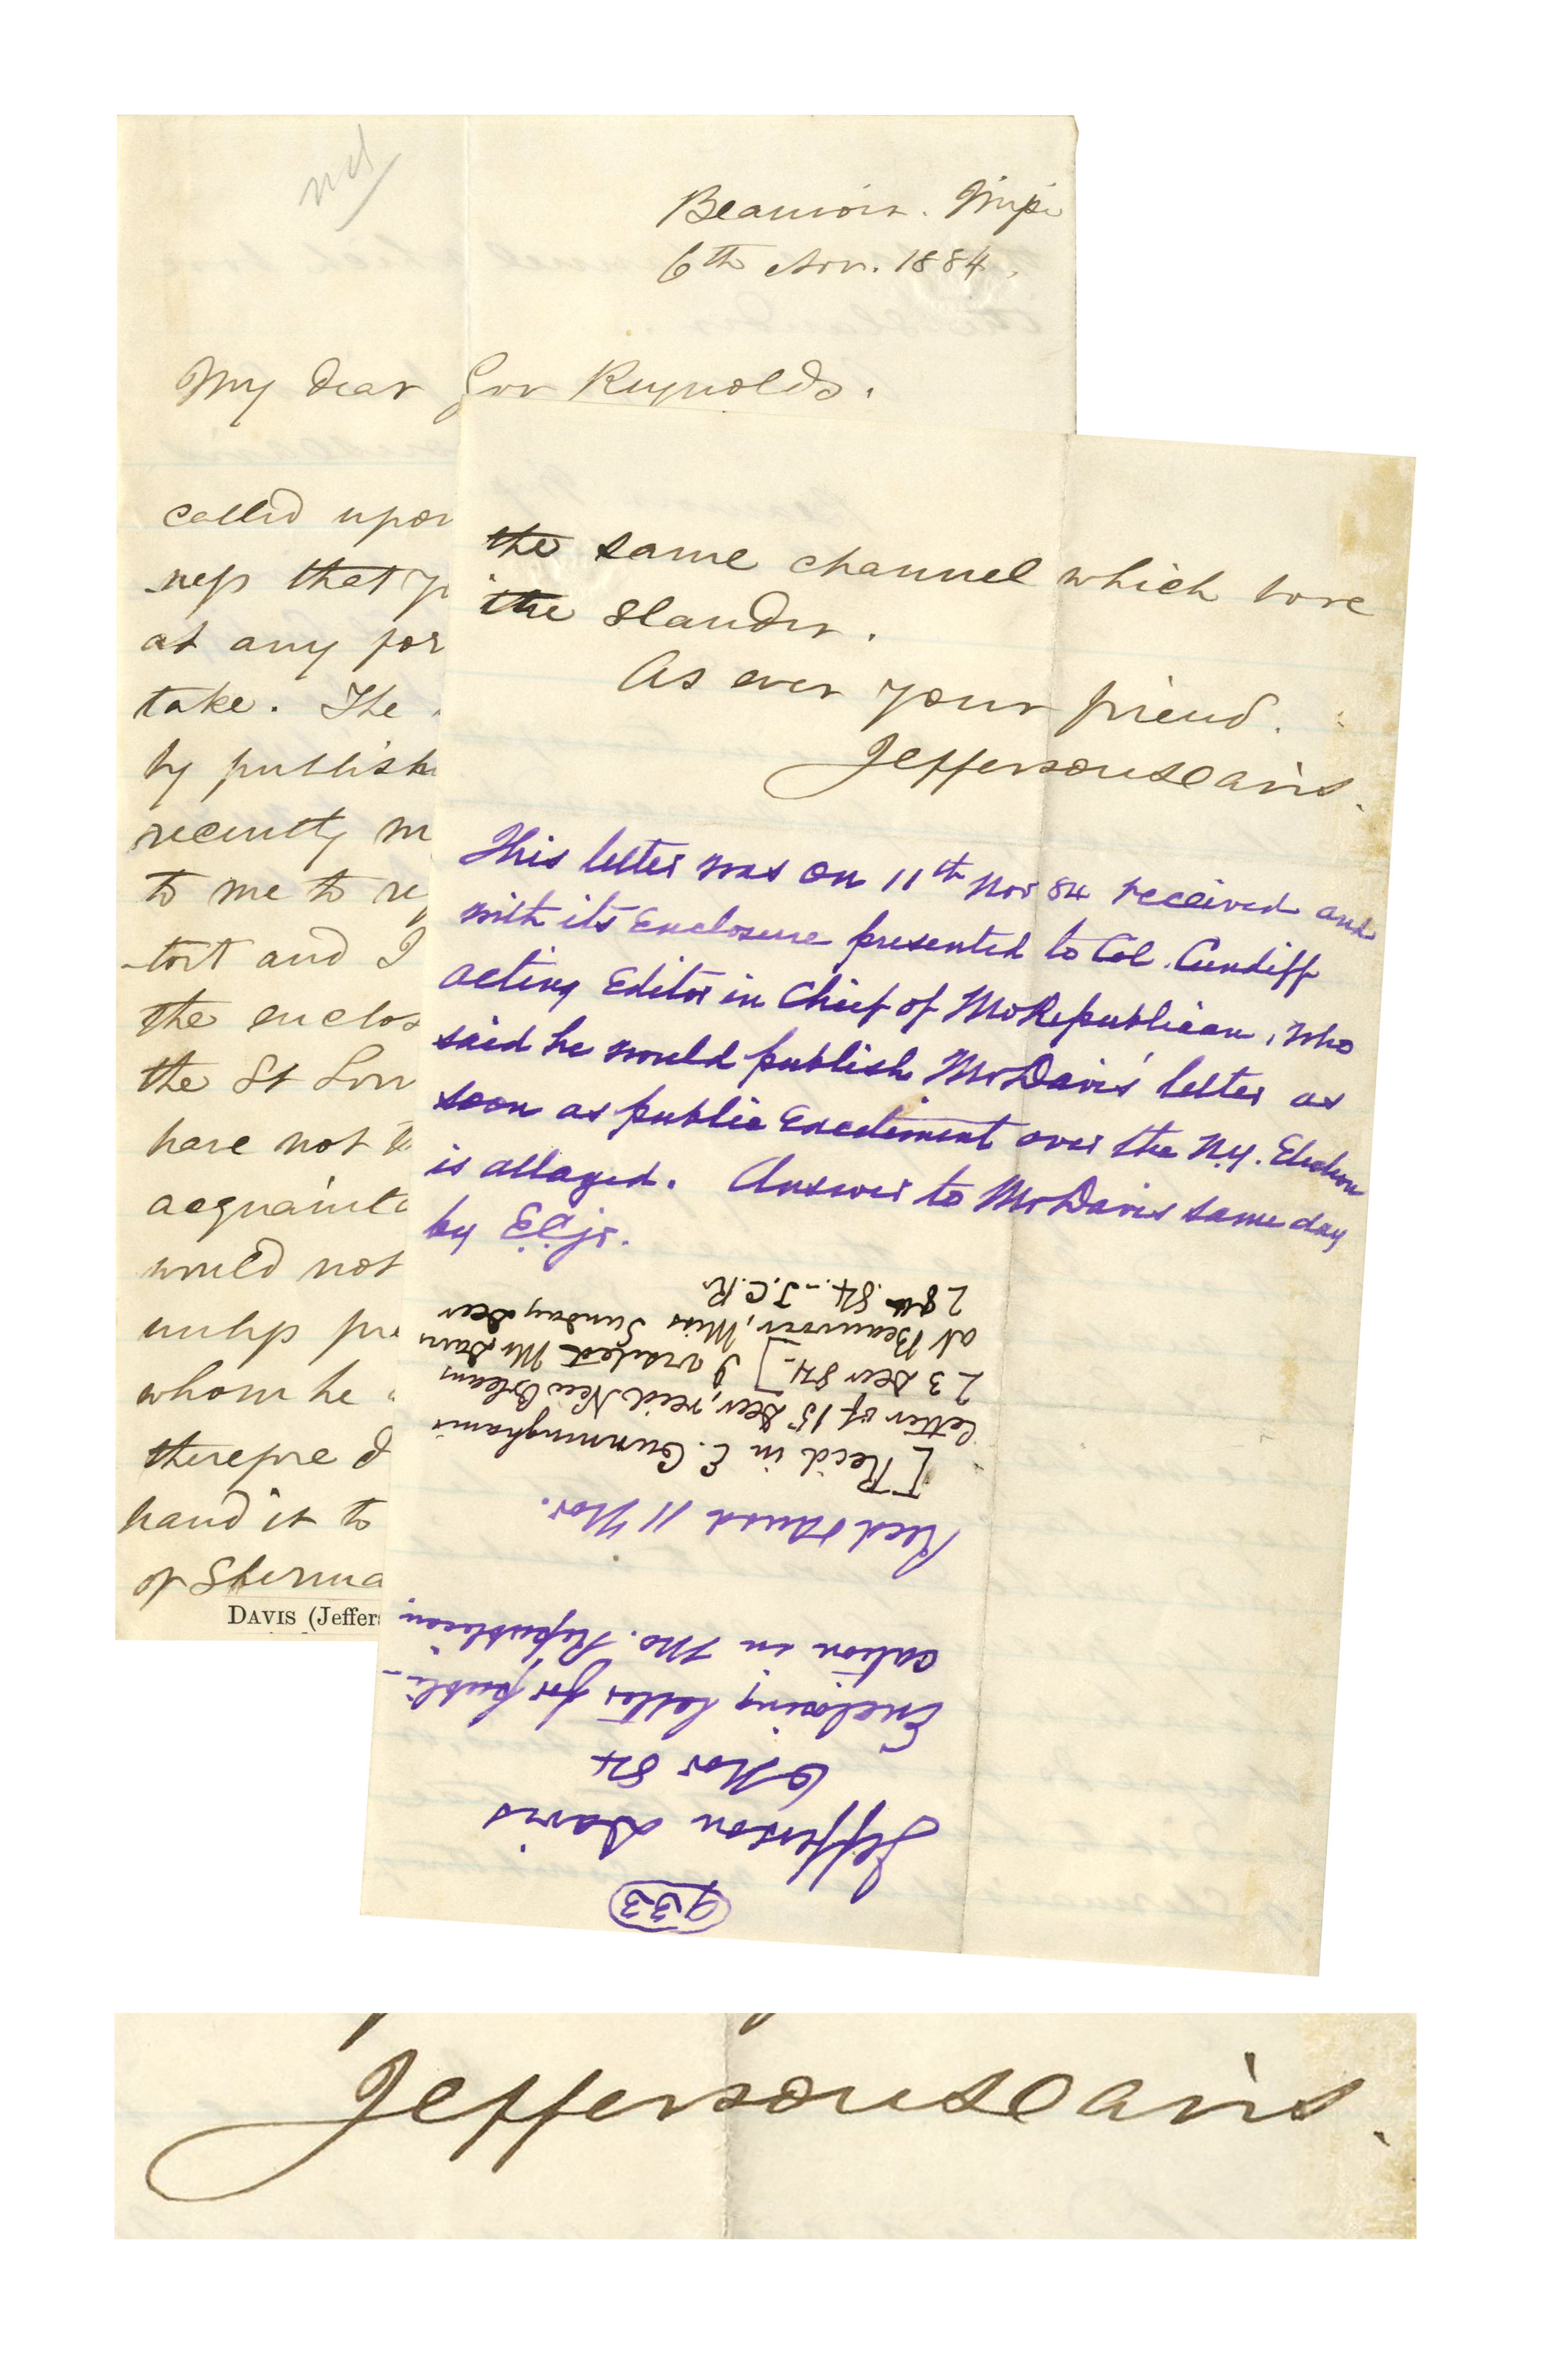 Beauvoir. Missi
6th Nov. 1884.
My dear Gov Reynolds.
called upon
-ness that
at any for
take. The
by publish
recently
to me to
-tort and I
the enclos
the St Lou
have not
acquainta
would not
unless
whom he
therefore
hand it to
of Sherma
DAVIS (Jeffers
the same channel which bore
the slander.
As ever your friend.
Jefferson Davis.
This letter was on 11th Nov 84 received and
with its Enclosure presented to Col. Cundiff
acting Editor in Chief of Mo Republican, who
said he would publish Mr Davis' letter as
soon as public Excitement over the N.Y. Election
is allayed. Answer to Mr Davis same day
by
Jefferson Davis
6 Nov 84
Enclosing letter for publi-
cation in Mo. Republican
Recd & ansd 11 Nov.
[Rec'd in E. Cunningham's
letter of 15 Decr, recd New Orleans
23 Decr 84.] I visited Mr Davis
at Beauvoir, Miss Sunday Decr
28th 84. - T.C.R.
933
Jefferson Davis.